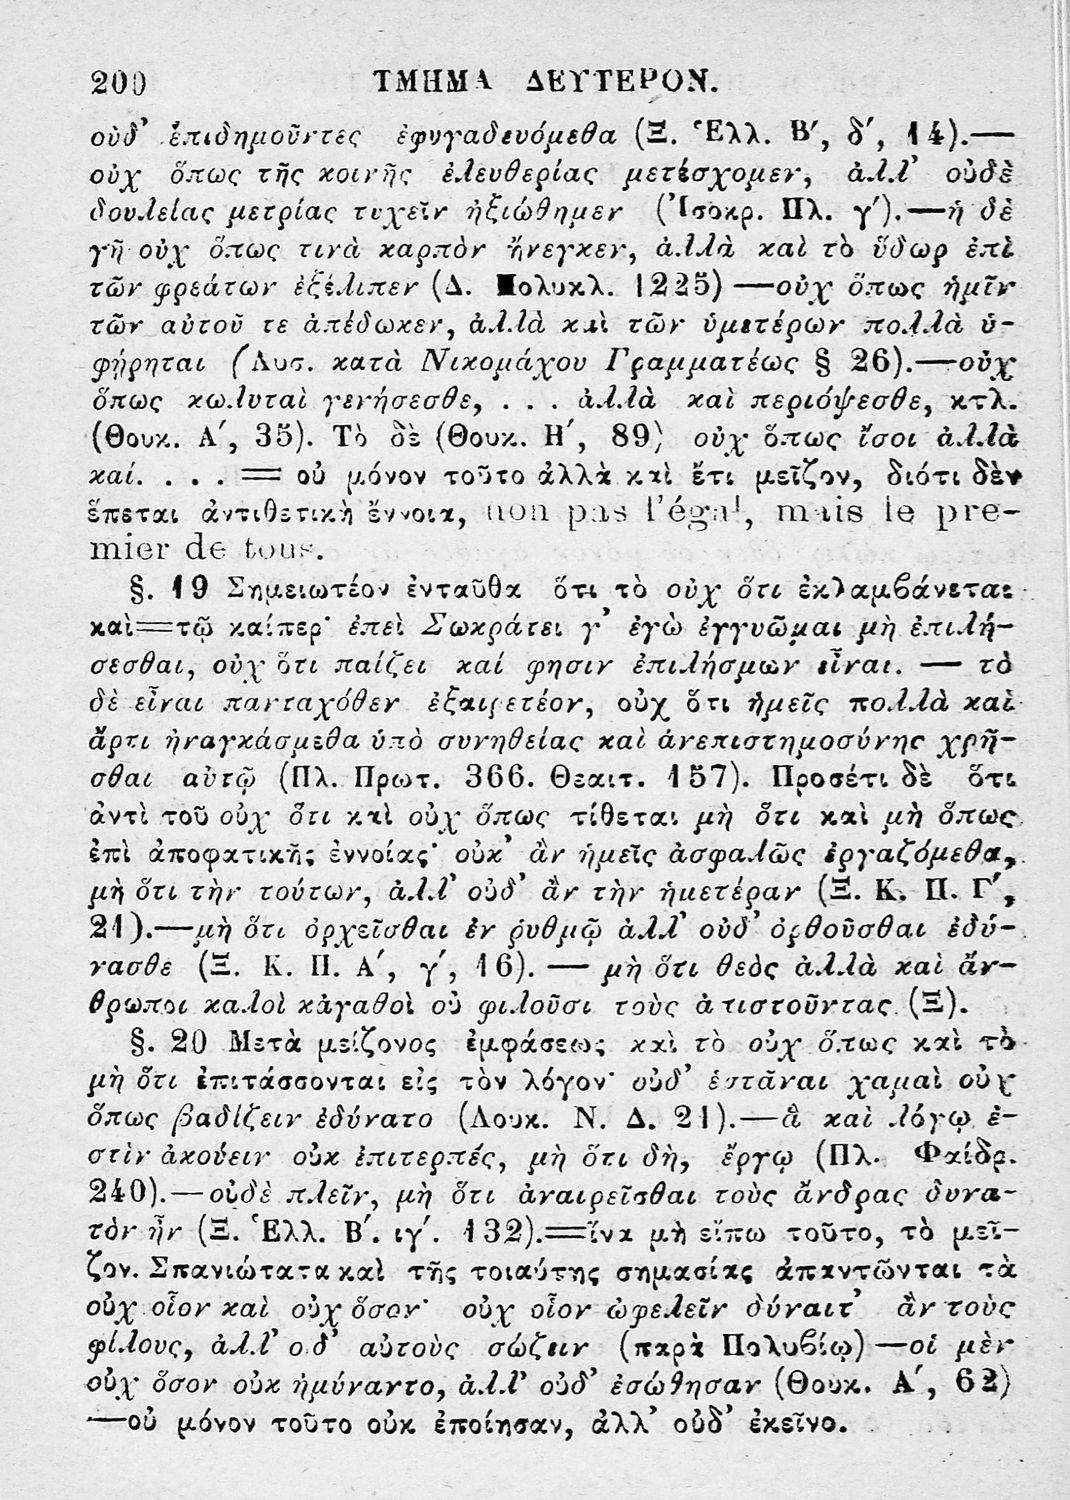 200 ΤΜΗΜΑ ΔΕΥΤΕΡΟΝ.
οὐδ’ ἐπιδημοῦντες ἐφυγαδευόμεθα (Ξ. Ἑλλ. Β′, δ′, 14).—
οὐχ ὅπως τῆς κοινῆς ἐλευθερίας μετέσχομεν, ἀλλ’ οὐδὲ
δουλείας μετρίας τυχεῖν ἠξιώθημεν (Ἰσοκρ. Πλ. γ′).—ἡ δὲ
γῆ οὐχ ὅπως τινὰ καρπὸν ἤνεγκεν, ἀλλὰ καὶ τὸ ὕδωρ ἐπὶ
τῶν φρεάτων ἐξέλιπεν (Δ. Πολυκλ. 1225) —οὐχ ὅπως ἡμῖν
τῶν αὑτοῦ τε ἀπέδωκεν, ἀλλὰ καὶ τῶν ὑμετέρων πολλὰ ὑ-
φῄρηται (Λυσ. κατὰ Νικομάχου Γραμματέως § 26).—οὐχ
ὅπως κωλυταὶ γενήσεσθε, . . . ἀλλὰ καὶ περιόψεσθε, κτλ.
(Θουκ. Α′, 35). Τὸ δὲ (Θουκ. Η′, 89) οὐχ ὅπως ἴσοι ἀλλὰ
καί. . . . = οὐ μόνον τοῦτο ἀλλὰ καὶ ἔτι μεῖζον, διότι δὲν
ἕπεται ἀντιθετικὴ ἔννοια, non pas l’égal, mais le pre-
mier de tous.
§. 19 Σημειωτέον ἐνταῦθα ὅτι τὸ οὐχ ὅτι ἐκλαμβάνεται
καὶ=τῷ καίπερ· ἐπεὶ Σωκράτει γ’ ἐγὼ ἐγγυῶμαι μὴ ἐπιλή-
σεσθαι, οὐχ ὅτι παίζει καί φησιν ἐπιλήσμων εἶναι. — τὸ
δὲ εἶναι πανταχόθεν ἐξαιρετέον, οὐχ ὅτι ἡμεῖς πολλὰ καὶ
ἄρτι ἠναγκάσμεθα ὑπὸ συνηθείας καὶ ἀνεπιστημοσύνης χρῆ-
σθαι αὐτῷ (Πλ. Πρωτ. 366. Θεαιτ. 157). Προσέτι δὲ ὅτι
ἀντὶ τοῦ οὐχ ὅτι καὶ οὐχ ὅπως τίθεται μὴ ὅτι καὶ μὴ ὅπως
ἐπὶ ἀποφατικῆς ἐννοίας· οὐκ’ ἂν ἡμεῖς ἀσφαλῶς ἐργαζόμεθα,
μὴ ὅτι τὴν τούτων, ἀλλ’ οὐδ’ ἂν τὴν ἡμετέραν (Ξ. Κ. Π. Γ′,
21).—μὴ ὅτι ὀρχεῖσθαι ἐν ῥυθμῷ ἀλλ’ οὐδ’ ὀρθοῦσθαι ἐδύ-
νασθε (Ξ. Κ. Π. Α′, γ′, 16). — μὴ ὅτι θεὸς ἀλλὰ καὶ ἄν-
θρωποι καλοὶ κἀγαθοὶ οὐ φιλοῦσι τοὺς ἀπιστοῦντας (Ξ).
§. 20 Μετὰ μείζονος ἐμφάσεως καὶ τὸ οὐχ ὅπως καὶ τὸ
μὴ ὅτι ἐπιτάσσονται εἰς τὸν λόγον· οὐδ’ ἑστᾶναι χαμαὶ οὐχ
ὅπως βαδίζειν ἐδύνατο (Λουκ. Ν. Δ. 21).—ἃ καὶ λόγῳ ἐ-
στὶν ἀκούειν οὐκ ἐπιτερπές, μὴ ὅτι δὴ, ἔργῳ (Πλ. Φαίδρ.
240).—οὐδὲ πλεῖν, μὴ ὅτι ἀναιρεῖσθαι τοὺς ἄνδρας δυνα-
τὸν ἦν (Ξ. Ἑλλ. Β′. ιγ′. 132).=ἵνα μὴ εἴπω τοῦτο, τὸ μεῖ-
ζον. Σπανιώτατα καὶ τῆς τοιαύτης σημασίας ἀπαντῶνται τὰ
οὐχ οἷον καὶ οὐχ ὅσον· οὐχ οἷον ὠφελεῖν δύναιτ’ ἂν τοὺς
φίλους, ἀλλ’ οδ’ αὐτοὺς σώζειν (παρὰ Πολυβίῳ) —οἱ μὲν
οὐχ ὅσον οὐκ ἠμύναντο, ἀλλ’ οὐδ’ ἐσώθησαν (Θουκ. Α′, 62)
—οὐ μόνον τοῦτο οὐκ ἐποίησαν, ἀλλ’ οὐδ’ ἐκεῖνο.